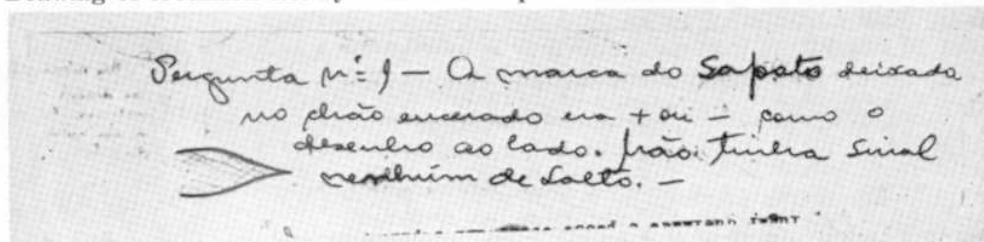 Pergunta nº 1 — A marca do sapato deixada
no chão encerado era + ou - como o
desenho ao lado. Não tinha sinal
nenhum de salto. —